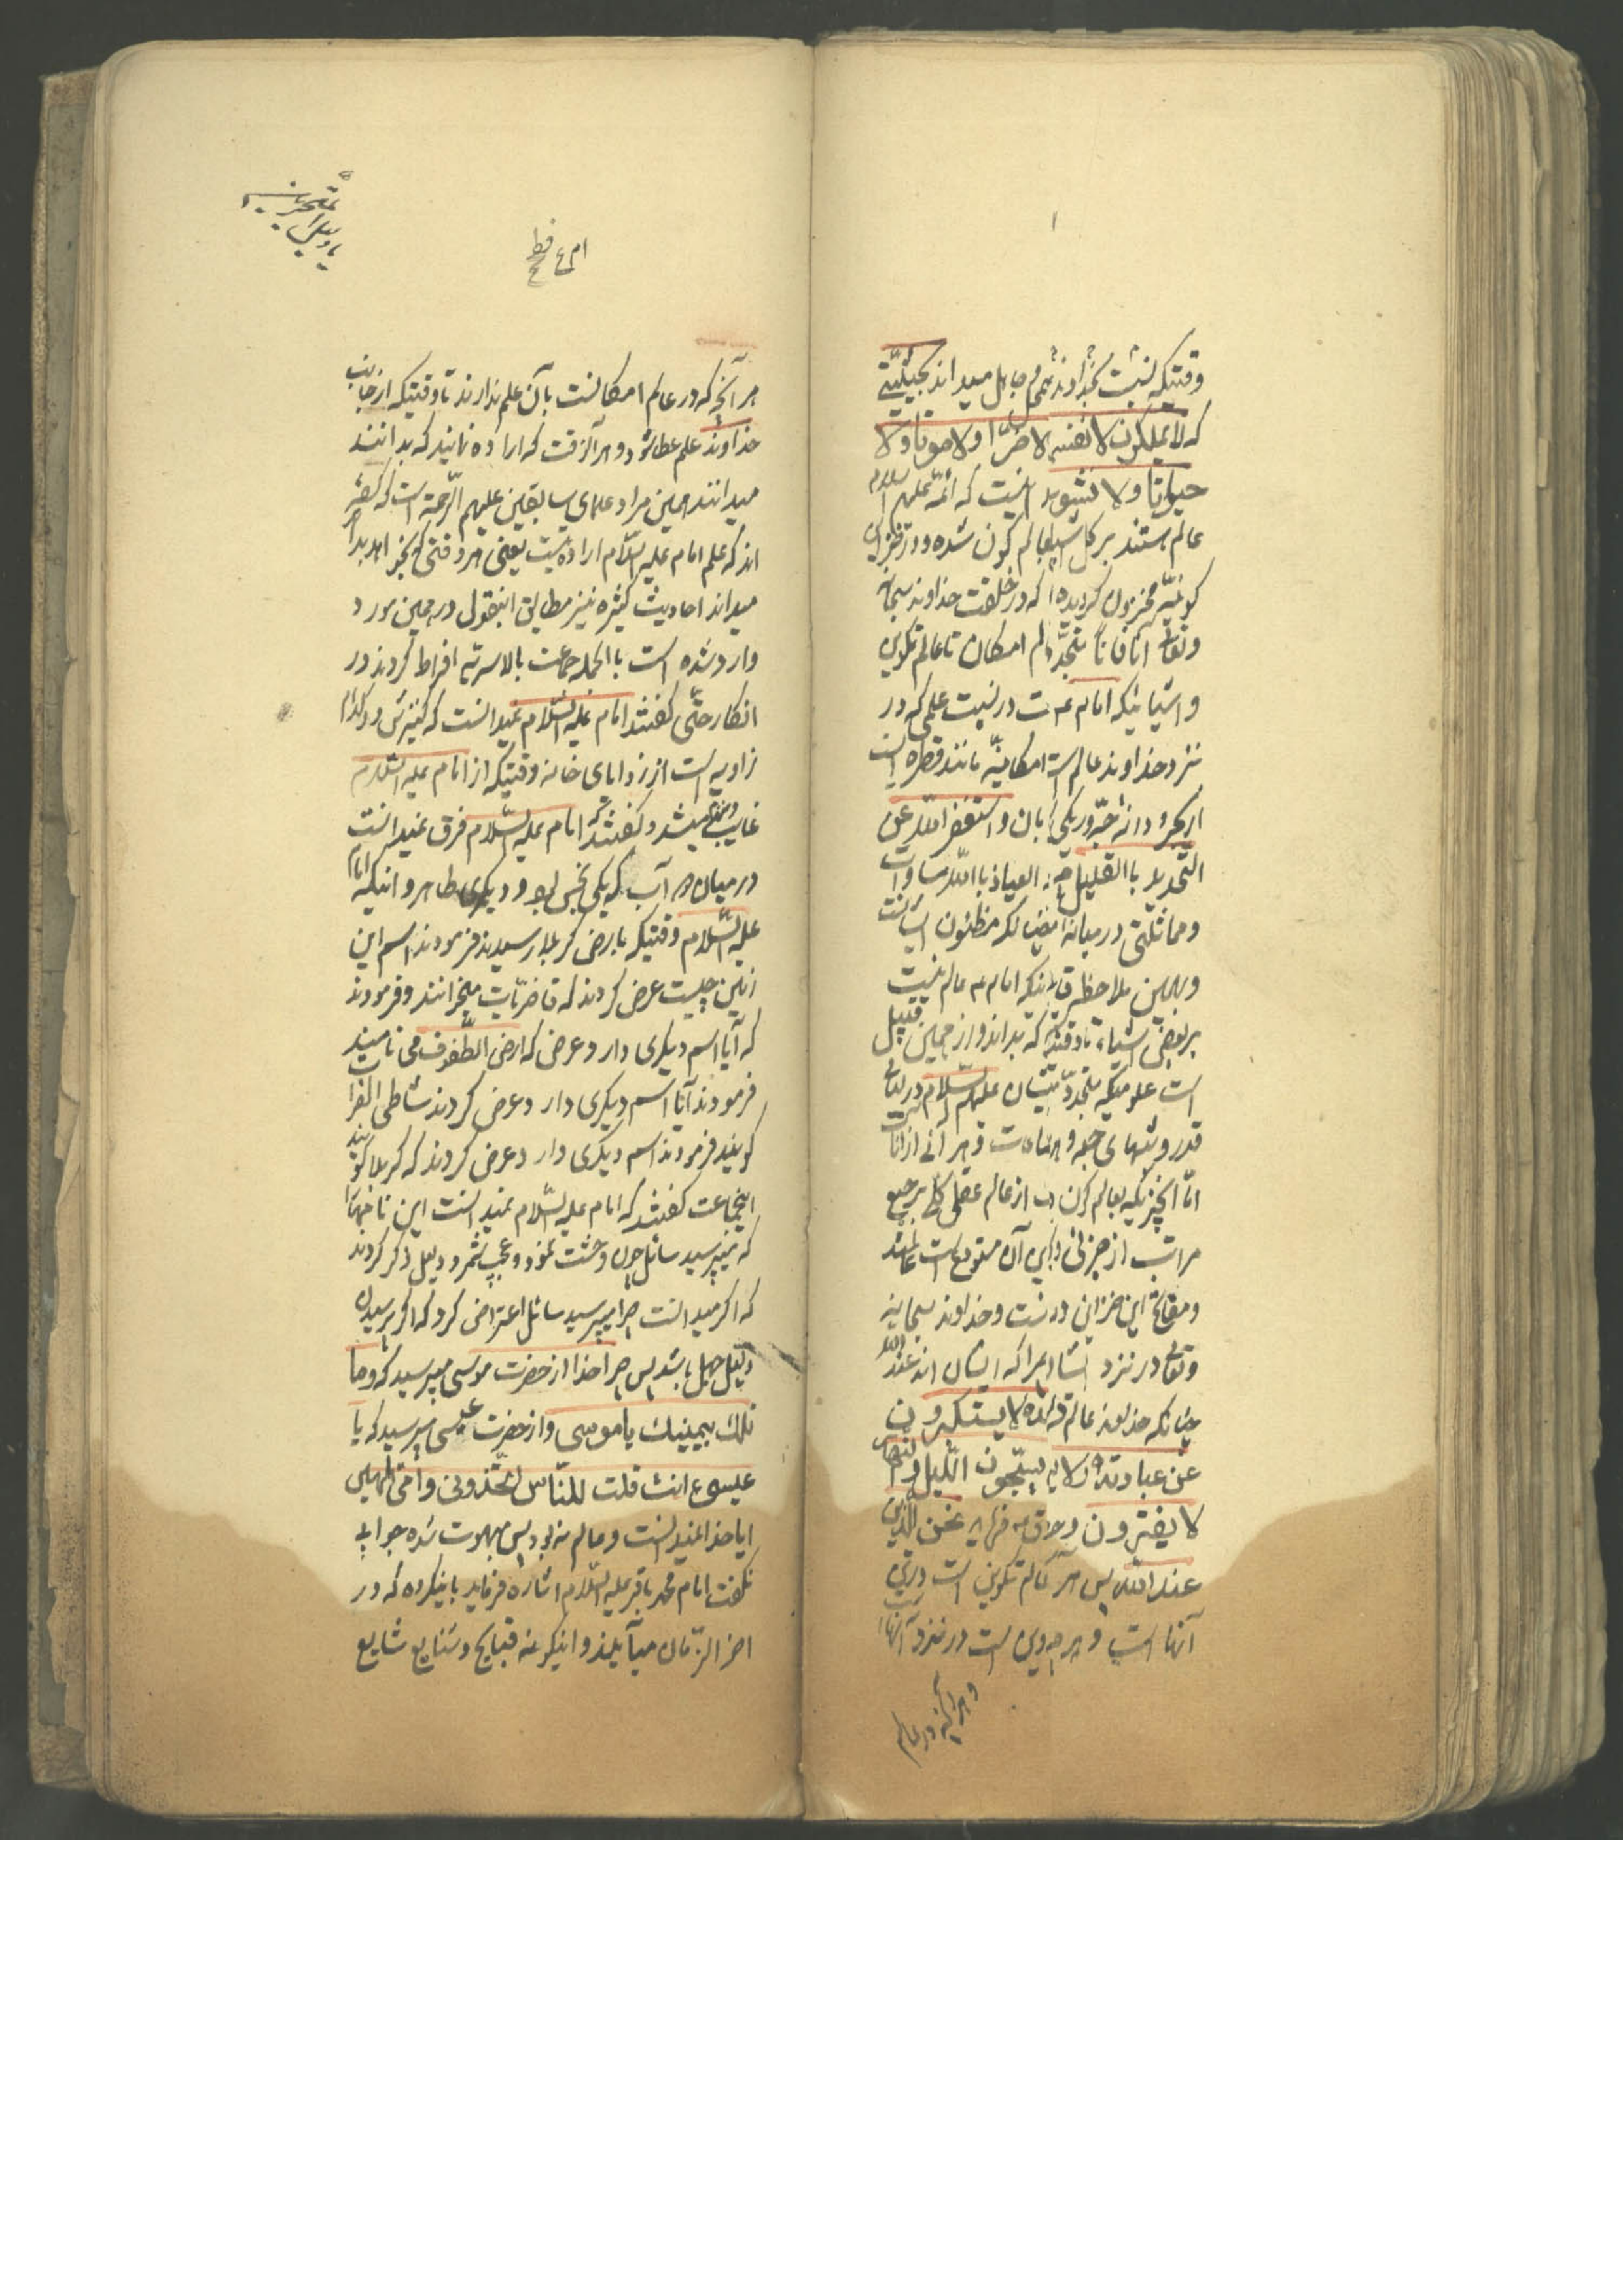 وقتیکه نسبت بخداوند همه جاهل میداند بحیثیتی
که لا یملکون لانفسهم ضرّا ولا موتا ولا
حیوتا ولا نشورا نیست که ائمّه علیهم السلام
عالم هستند بر کل اشیا بعالم کون شده و در خزاین
کونیّه مخزون گردیده که در خلقت خداوند سبحانه
وتعالی آنا فآناً متجدّد عالم امکان تا عالم تکوین
و اشیائیکه امام ع در نسبت علمی که در
نزد خداوند عالم است امکانیّه مانند قطره است
از بحر و دانه حبّه و ریک بیابان و استغفر الله عن
التحدید بالقلیل چه العیاذ بالله مساوات
ومماثلتی در میانه چنانکه مظنون ایشانست
وبهمین ملاحظه قائلیکه امام ع عالم نیست
بر بعض اشیاء تا وقتیکه بداند و از همین قبیل
است علومیکه متجدّد بایشان علیهم السّلام در لیالی
قدر و شبهای جمعه و ساعات و هر آنی از آنات
امّا آنچیزیکه بعالم کون از عالم عقلی کلی بر جمیع
مراتب از جزئی و کلی آن مستودع است
ومفاتح این خزاین در دست و خداوند سبحانه
وتعالی در نزد ایشان چرا که ایشان اند عند الله
چنانکه خداوند عالم فرموده لا یستکبرون
عن عبادته یسبّحون اللّیل والنهار
لا یفترون وصادق ع فرماید نحن الذین
عند الله پس هر عالم تکوین است در پیش
آنها است و هر چه در این است در نزد آنها
و هر آنچه در عالم
ام ع فط
هر آنچه که در عالم امکانست بآن علم ندارند تا وقتیکه از جانب
خداوند علم عطا شود و هر آنوقت که اراده نمایند که بدانند
میدانند همین مراد علمای سابقین علیهم الرّحمة است که گفته
اند که علم امام علیه السّلام ارادهٔ‌یست یعنی هر وقتی که بخواهد بداند
میداند احادیث کثیره نیز مطابق اینقول در همین مورد
وارد شده است با الجمله جماعت بالاسریه افراط کردند در
انکار حتّی گفتند امام علیه السّلام نمیدانست که کنیزش در کدام
زاویه است از زوایای خانه وقتیکه از امام علیه السّلام
غایب میشد و گفتند که امام علیه السّلام فرق نمیدانست
در میان دو آب که یکی نجس بود و دیگری طاهر و اینکه امام
علیه السّلام وقتیکه بارض کربلا رسیدند فرمودند اسم این
زمین چیست عرض کردند که قاضریّات میخوانند و فرمودند
که آیا اسم دیگری دارد عرض که ارض الطّفوف می نامیند
فرمودند آیا اسم دیگری دارد عرض کردند شاطی الفرات
گویند فرمودند اسم دیگری دارد عرض کردند که کربلا گویند
اینجماعت گفتند که امام علیه السّلام نمیدانست این نامها را
که میپرسید سائل چون وحشت نمود و عجب شمرد دلیل ذکر کردند
که اگر میدانست چرا میپرسید سائل اعتراض کرد که اگر پرسیدن
دلیل جهل باشد پس چرا خدا از حضرت موسی میپرسید که وما
تلك بیمینك یا موسی و از حضرت عیسی میپرسید که یا
عیسی ءانت قلت للنّاس اتّخذونی وامّی الهین
ایا خدا نمیدانست و عالم نه بود پس مبهوت شده جوابی
نگفت امام محمد باقر علیه السّلام اشاره فرماید باینگروه که در
اخر الزّمان میآیند و اینگونه قبایح و شنایع شایع